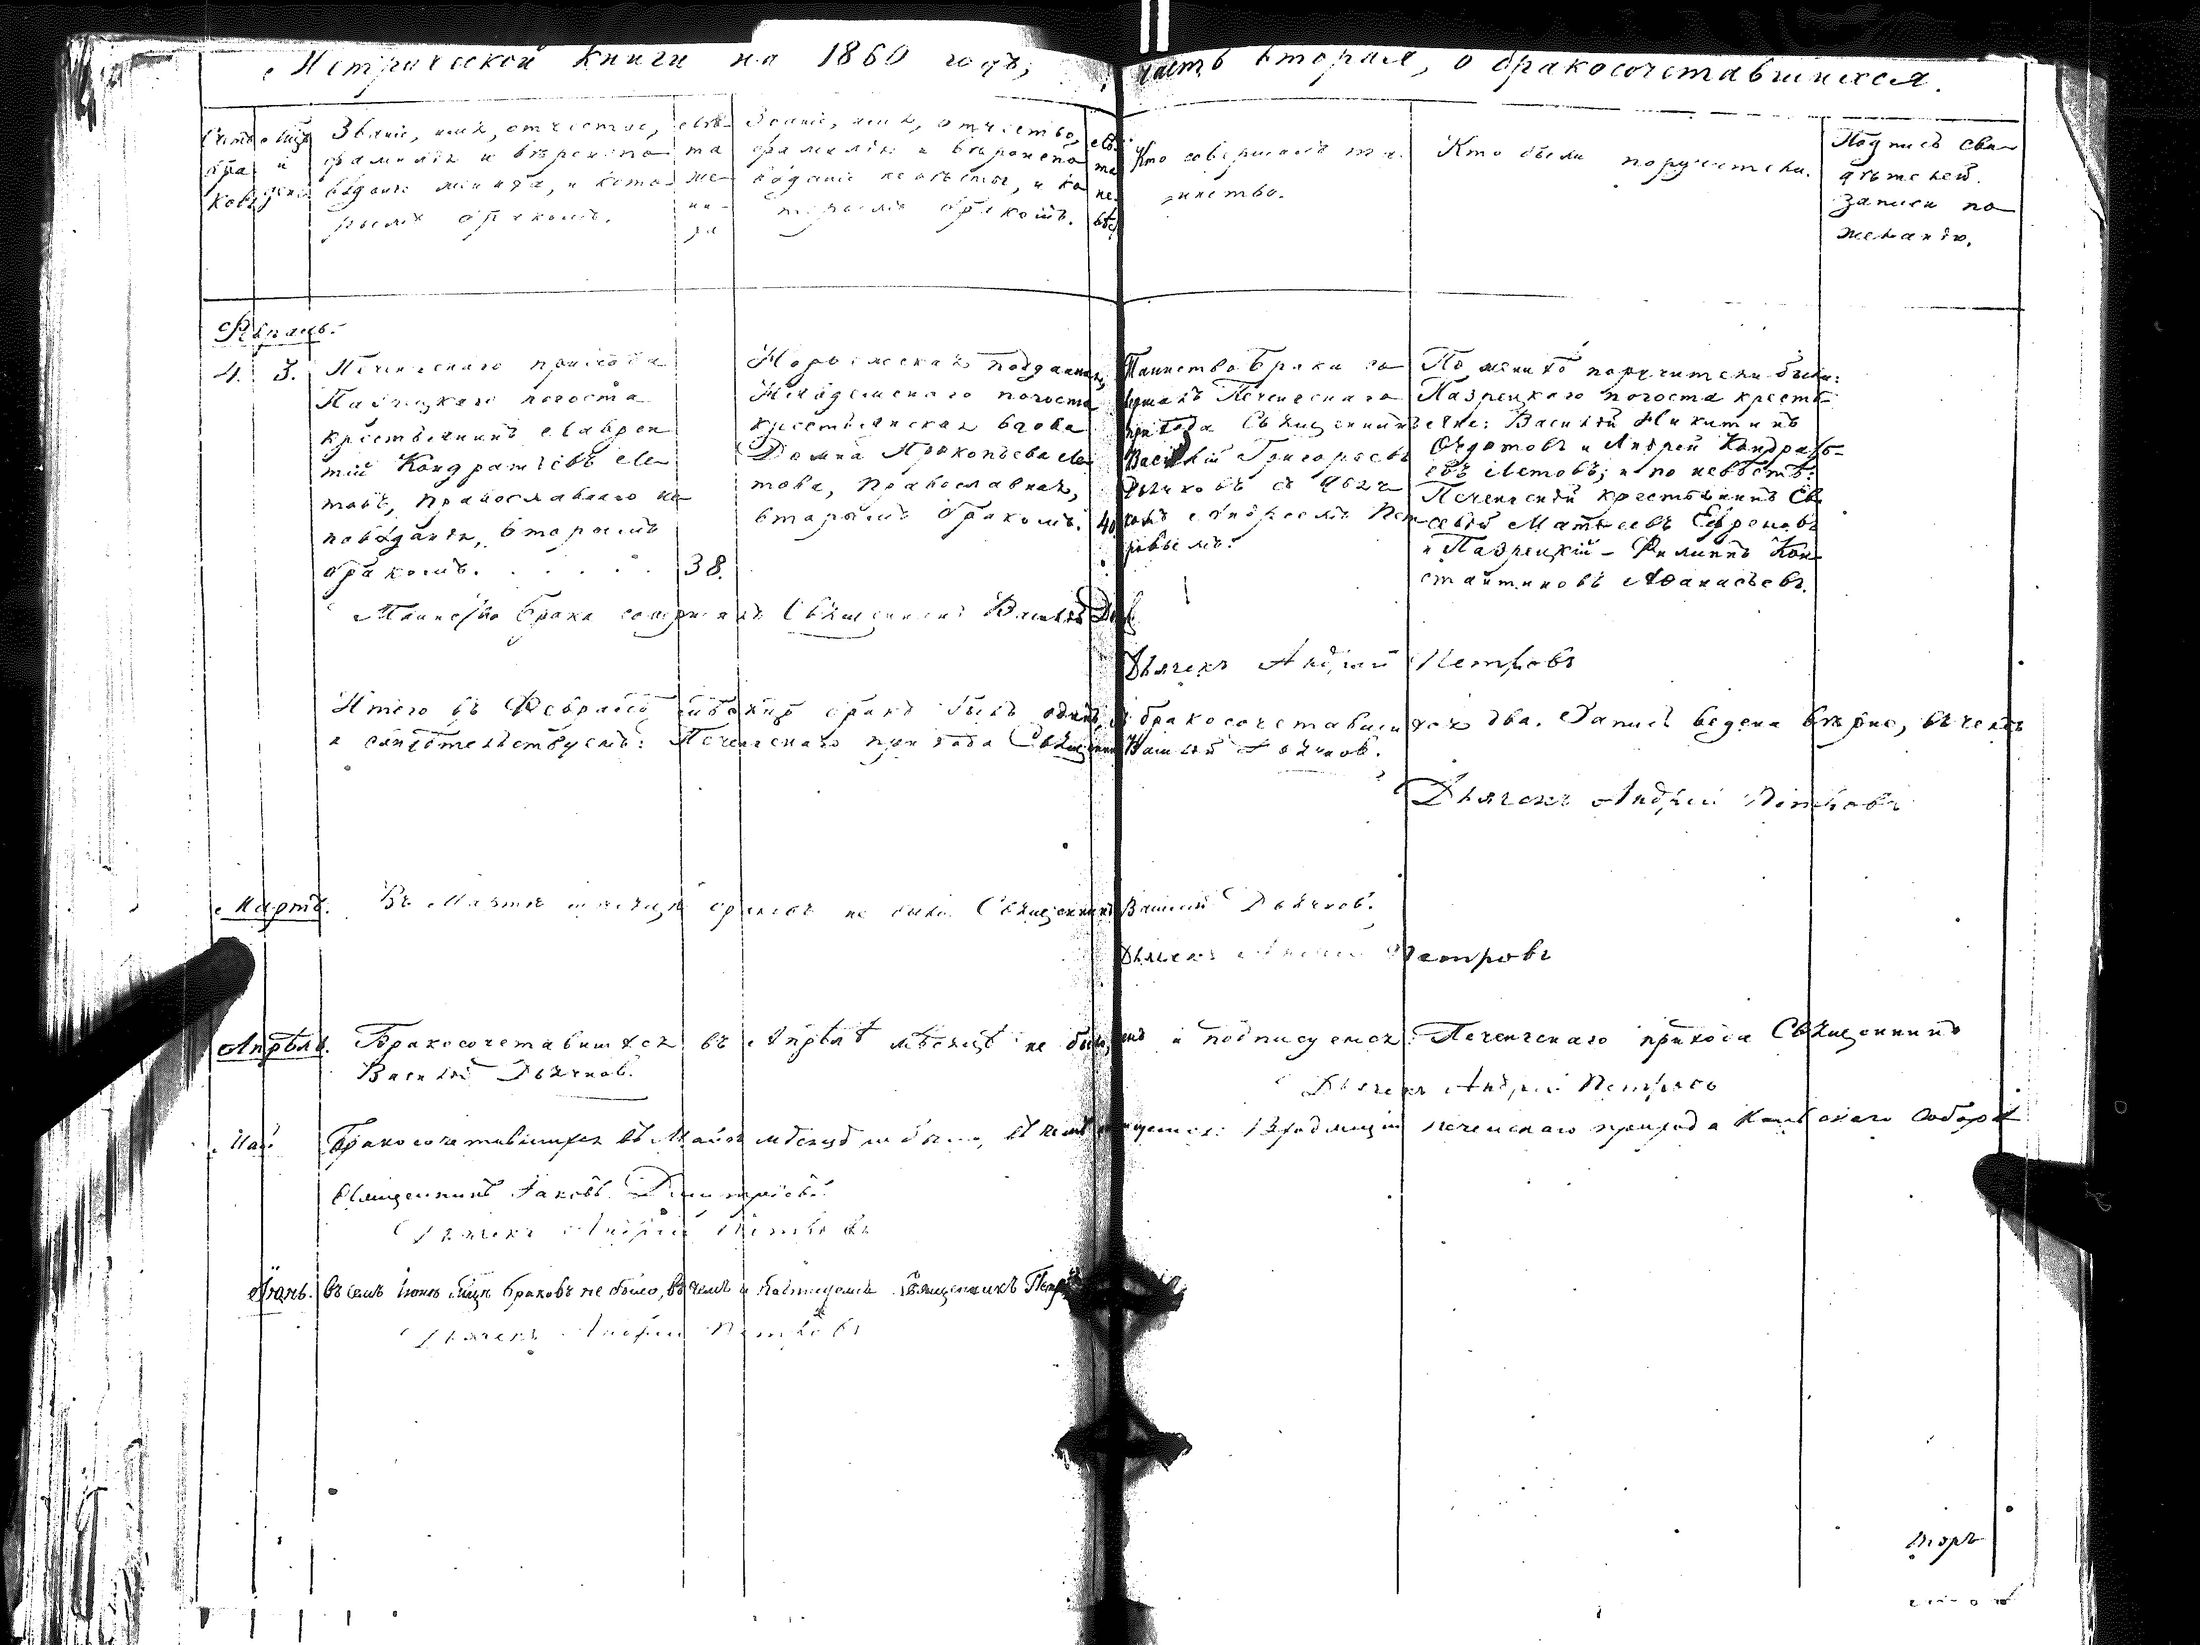 Метрической книги на 1860 годъ, часть вторая, о бракосочетавшихся.
Счетъ браковъ
Мцъ и день
Званіе, имя, отчество,
фамилія и вѣроиспо
вѣданіе жениха, и кото
рымъ бракомъ.
лѣ-
та
же-
ни-
ха
Званіе, имя, отчество,
фамилія и вѣроиспо
вѣданіе невѣсты, и ко
торымъ бракомъ.
лѣ
та
не
вѣс
Кто совершалъ та-
инство.
Кто были поручители.
Подпись сви-
дѣтелей
записи по
желанію.
4. 3.
Печенгскаго прихода
Пазрецкаго погоста
крестьянинъ Лаврен
тій Кондратьевъ Ле
товъ, православнаго ис
повѣданія, вторымъ
бракомъ. 38.
Норвежская подданная,
Нявдемскаго погоста
крестьянская вдова
Домна Прокопьева Ле
това, православная,
вторымъ бракомъ. 40
Таинство брака со
вершалъ Печенгскаго
прихода Священникъ
Василій Григорьевъ
Дьячковъ съ Дьяч
комъ Андреемъ Пет
ровымъ.
По женихѣ поручители были:
Пазрецкаго погоста кресть
яне: Василій Никитинъ
Федотовъ и Андрей Кондрать-
евъ Летовъ; и по невѣстѣ:
Печенгскій крестьянинъ Ев
севій Матвеевъ Ефремовъ
и Пазрецкій - Филиппъ Кон
стантиновъ Афанасьевъ.
Таинство брака совершалъ Священникъ Василій
Дьячекъ Андрей Петровъ
Итого въ Февралѣ мѣсяцѣ бракъ былъ одинъ, бракосочетавшихся два. Запись ведена вѣрно, въ чемъ
и свидѣтельствуемъ: Печенгскаго прихода Священникъ Василій Дьячков.
Дьячекъ Андрей Петровъ
Мартъ. Въ Мартѣ мѣсяцѣ браковъ не было. Священникъ Василій Дьячков.
Дьячекъ Андрей Петровъ
Апрѣль. Бракосочетавшихся въ Апрѣлѣ мѣсяцѣ не было, и подписуемся: Печенгскаго прихода Священникъ
Василій Дьячков.
Дьячекъ Андрей Петровъ
Май Бракосочетавшихся въ Майѣ мѣсяцѣ не было, въ чемъ печенгскаго прихода Кольскаго Собора
Священникъ Іаковъ Димитріевъ.
Дьячекъ Андрей Петровъ
Іюнь. Въ семъ Іюнѣ Мцѣ браковъ не было, въ чемъ и Священникъ
Дьячекъ Андрей Петровъ